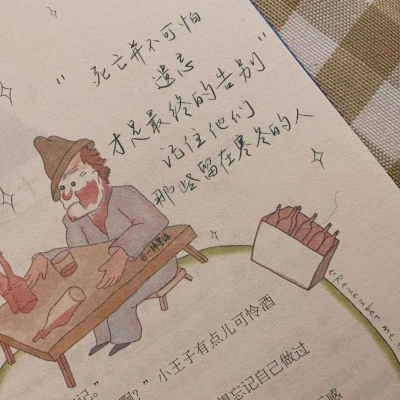 "死亡并不可怕
遗忘
才是最终的告别"
记住他们
那些留在寒冬的人
@Remember me
记。"
啊?"小王子有点儿可怜酒
想忘记自己做过